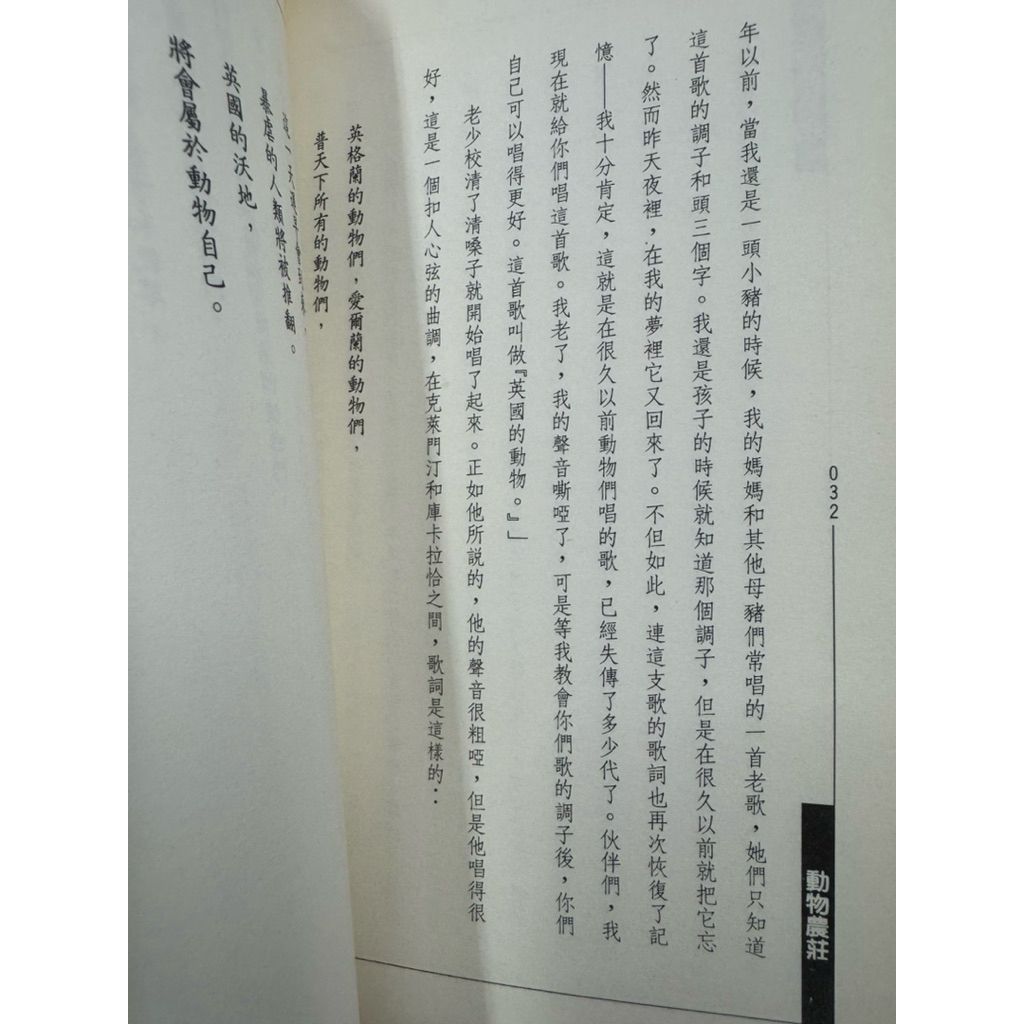 032
動物農莊
年以前，當我還是一頭小豬的時候，我的媽媽和其他母豬們常唱的一首老歌，她們只知道
這首歌的調子和頭三個字。我還是孩子的時候就知道那個調子，但是在很久以前就把它忘
了。然而昨天夜裡，在我的夢裡它又回來了。不但如此，連這支歌的歌詞也再次恢復了記
憶——我十分肯定，這就是在很久以前動物們唱的歌，已經失傳了多少代了。伙伴們，我
現在就給你們唱這首歌。我老了，我的聲音嘶啞了，可是等我教會你們歌的調子後，你們
自己可以唱得更好。這首歌叫做『英國的動物。』」
老少校清了清嗓子就開始唱了起來。正如他所說的，他的聲音很粗啞，但是他唱得很
好，這是一個扣人心弦的曲調，在克萊門汀和庫卡拉恰之間，歌詞是這樣的：
英格蘭的動物們，愛爾蘭的動物們，
普天下所有的動物們，
暴虐的人類將被推翻。
英國的沃地，
將會屬於動物自己。